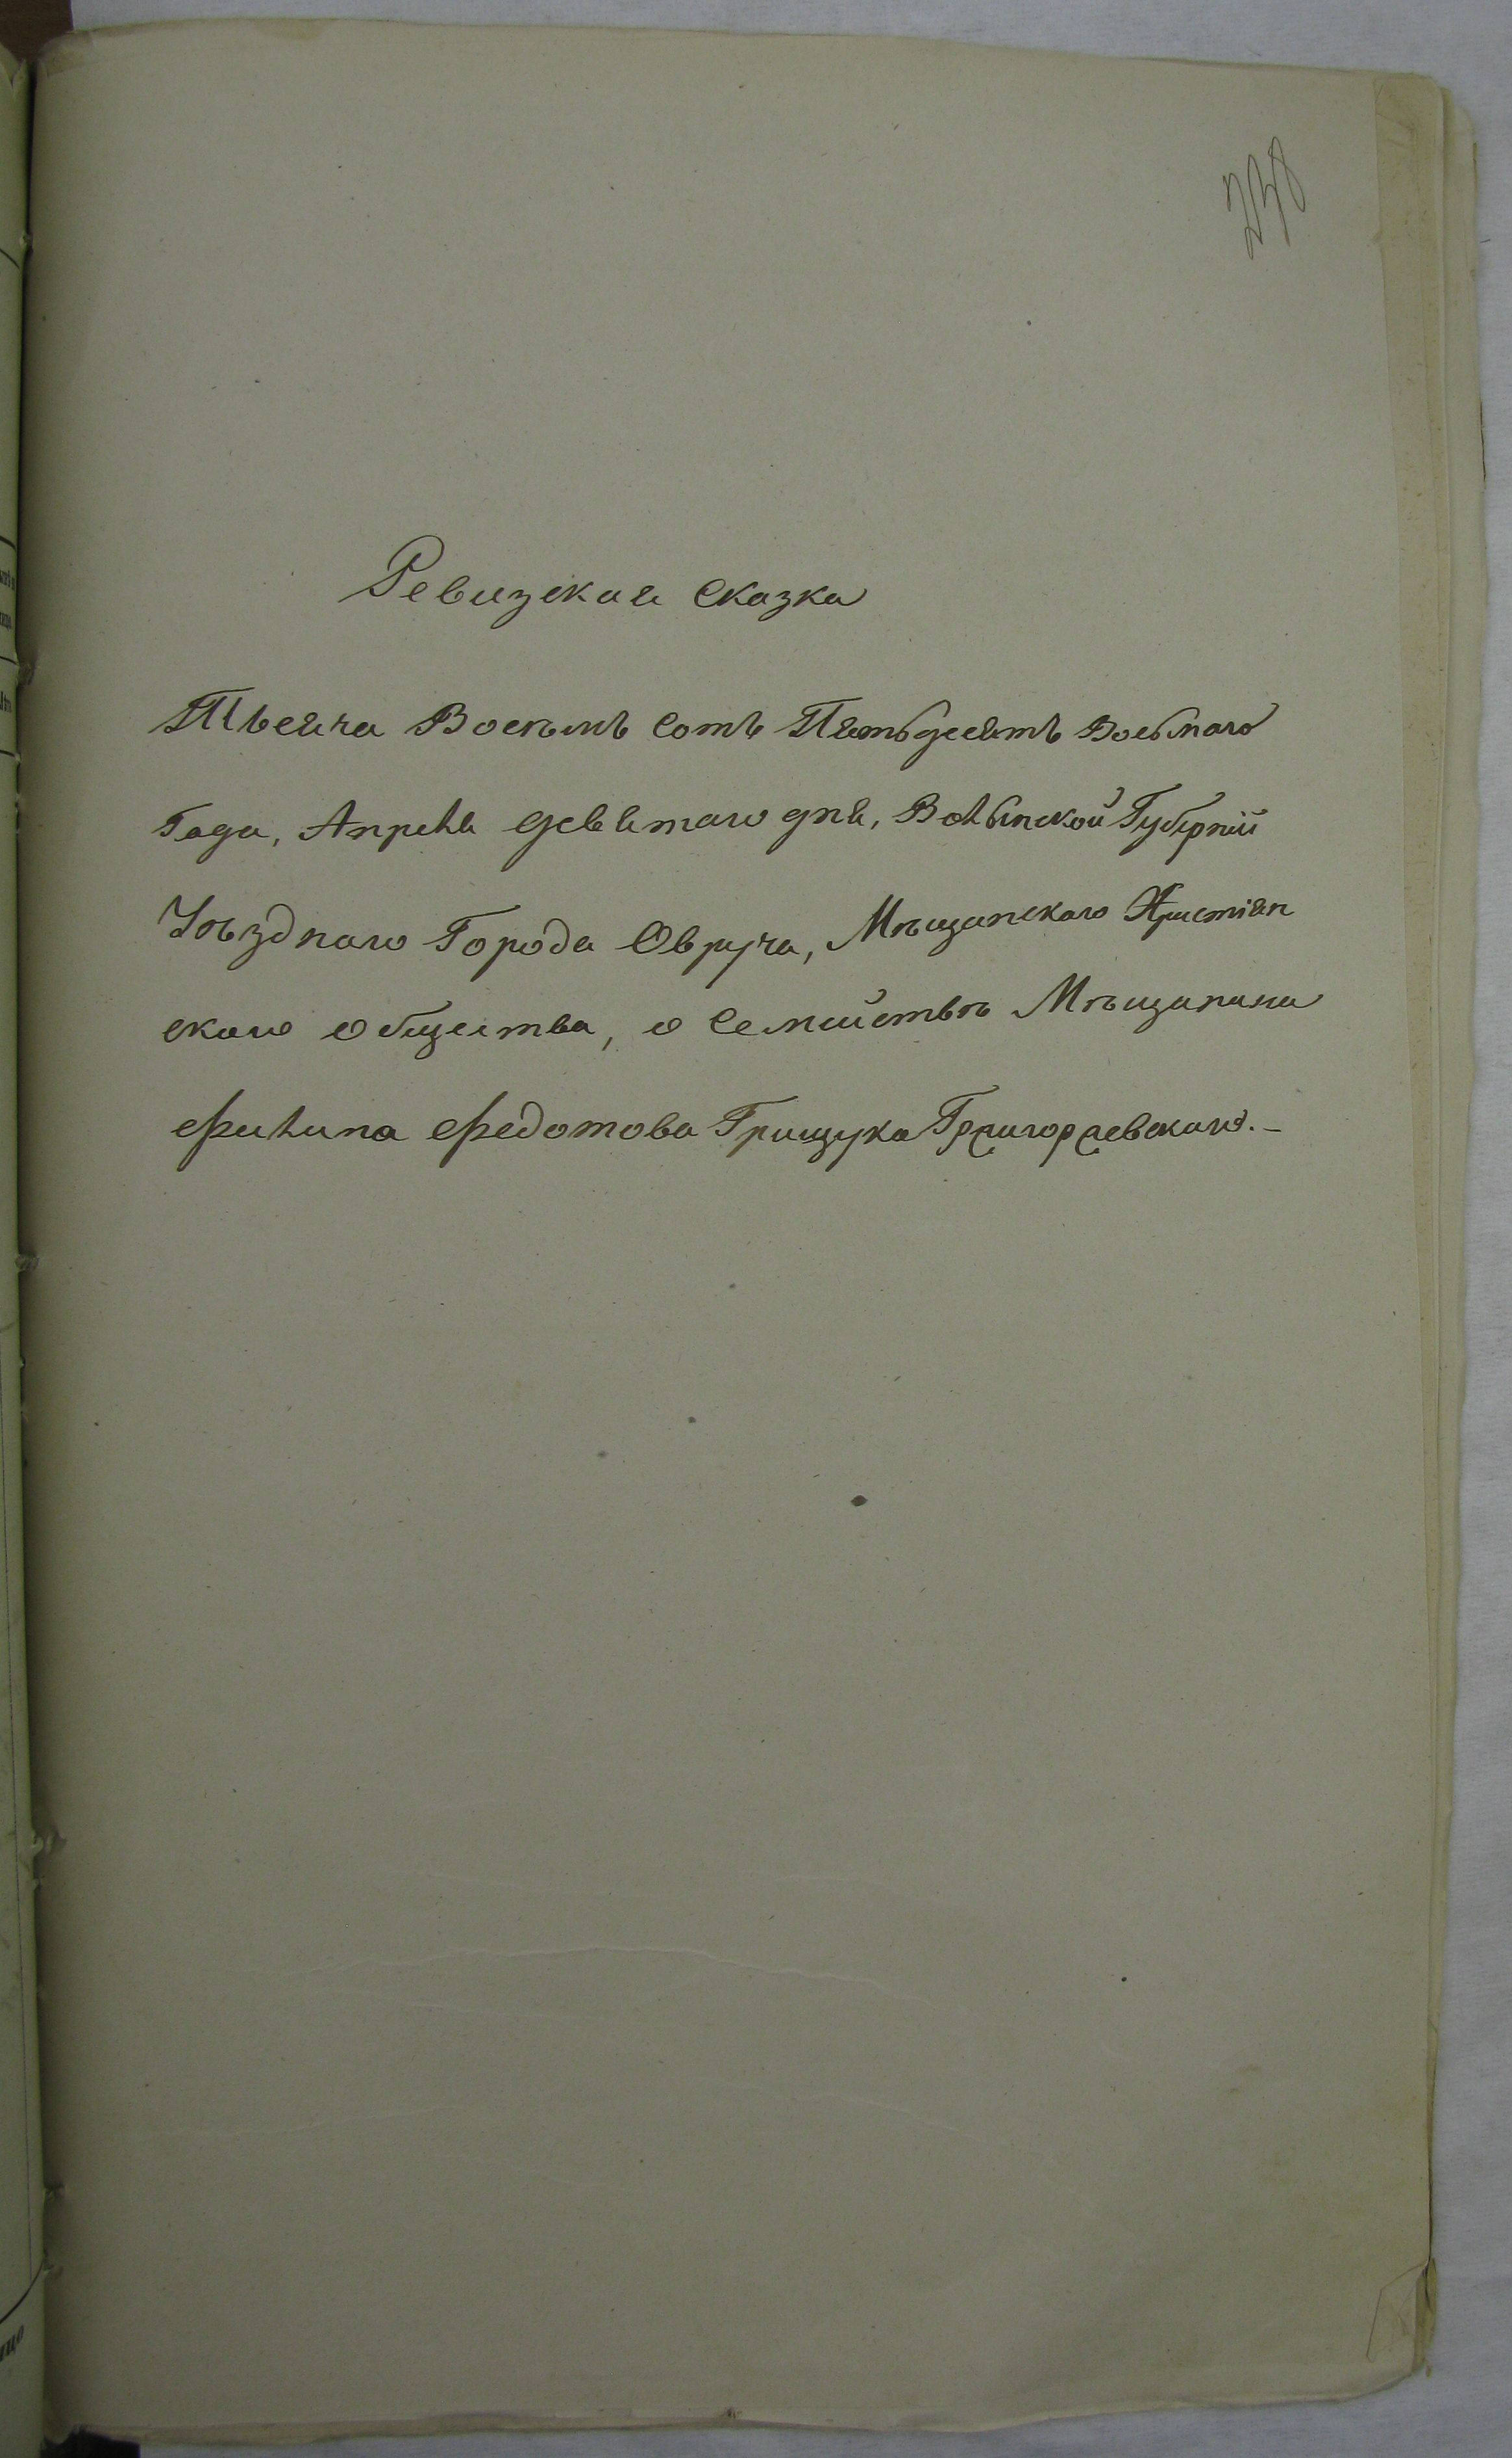 238
Ревизская Сказка
Тысяча Восемь Сотъ Пятьдесятъ Восьмаго
Года, Апреля девятаго дня, Волынской Губерніи
Уѣзднаго Города Овруча, Мѣщанскаго Христіян
скаго Общества, о Семѣйствѣ Мѣщанина
Филипа Федотова Грищука Григоріевскаго.-